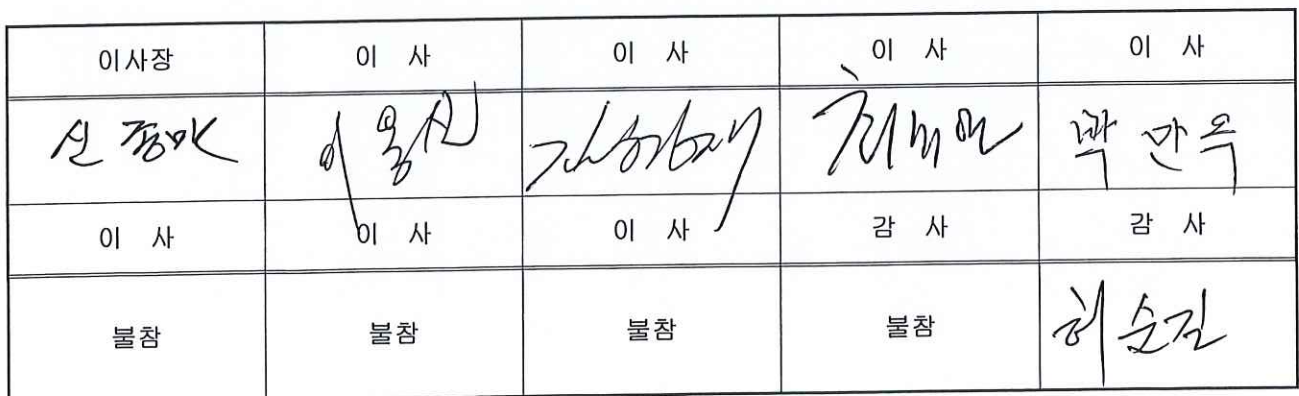 이사장 이 사 이 사 이 사 이 사
신 이용신 박만옥
이 사 이 사 이 사 감 사 감 사
불참 불참 불참 불참 허순길